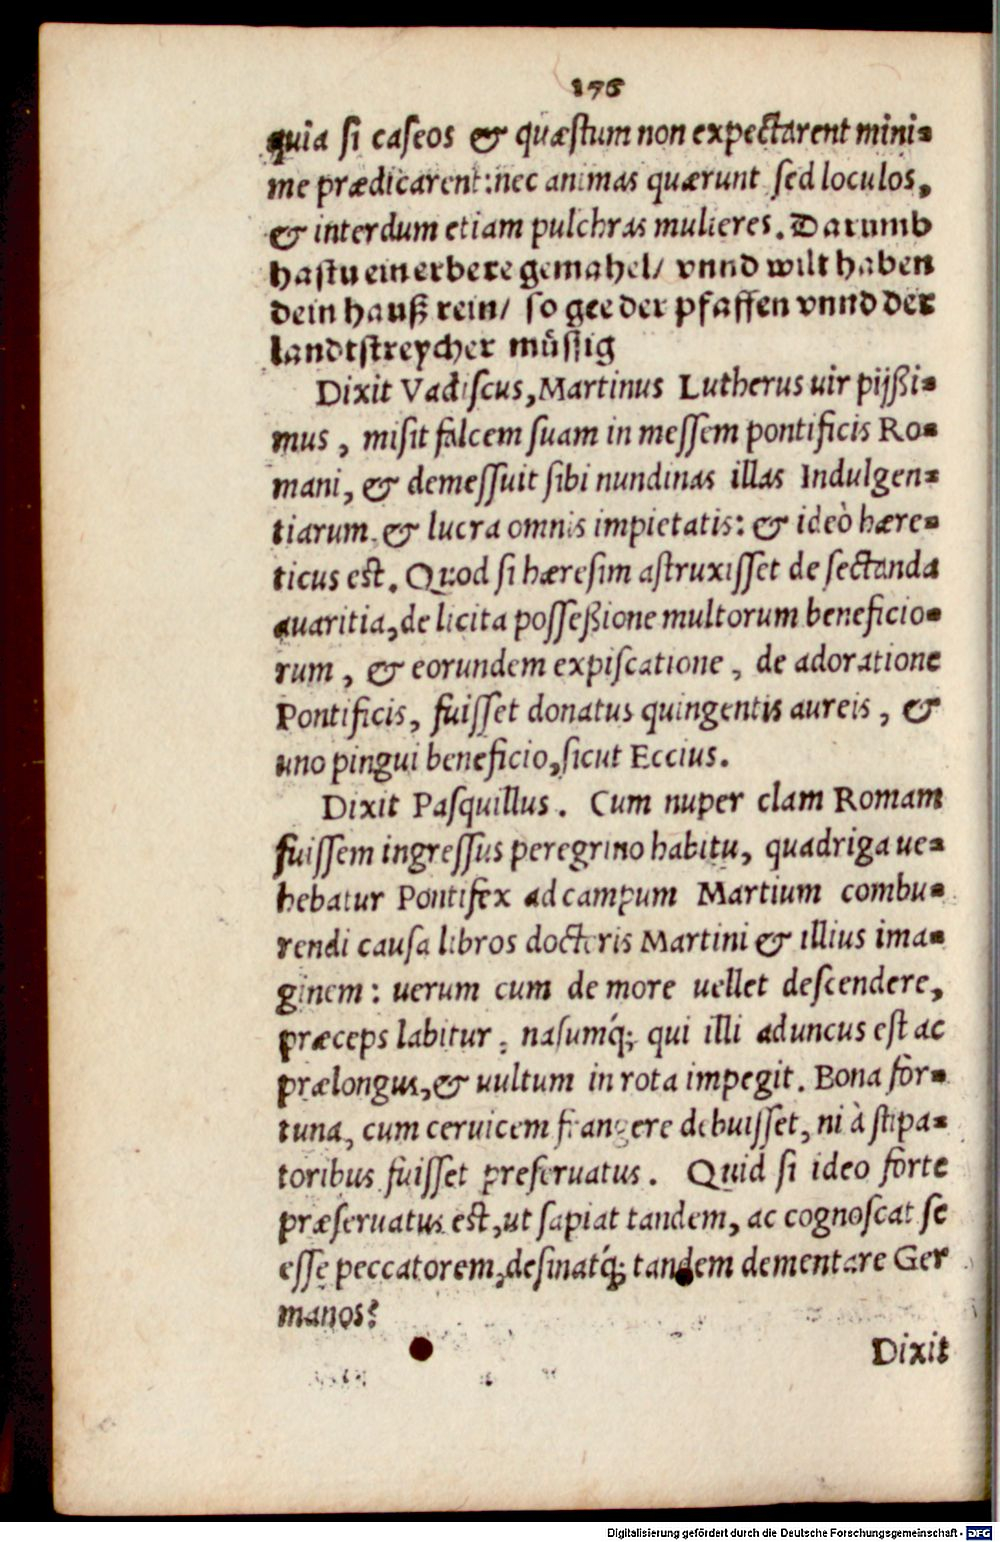 176
quia ſi caſeos & quæſtum non expectarent mini-
me prædicarent: nec animas quærunt ſed loculos,
& interdum etiam pulchras mulieres. Darumb
haſtu ein erbere gemahel/ vnnd wilt haben
dein hauß rein/ ſo gee der pfaffen vnnd der
landtſtreycher muͤſſig
Dixit Vadiſcus, Martinus Lutherus uir pijßi-
mus, miſit falcem ſuam in meſſem pontificis Ro-
mani, & demeſſuit ſibi nundinas illas Indulgen-
tiarum & lucra omnis impietatis: & ideò hære-
ticus est. Quod ſi hæreſim aſtruxiſſet de ſectanda
auaritia, de licita poſſeßione multorum beneficio-
rum, & eorundem expiſcatione, de adoratione
Pontificis, fuiſſet donatus quingentis aureis, &
uno pingui beneficio, ſicut Eccius.
Dixit Paſquillus. Cum nuper clam Romam
fuiſſem ingreſſus peregrino habitu, quadriga ue-
hebatur Pontifex ad campum Martium combu-
rendi cauſa libros doctoris Martini & illius ima-
ginem: uerum cum de more uellet deſcendere,
præceps labitur, naſumq́; qui illi aduncus eſt ac
prælongus, & uultum in rota impegit. Bona for-
tuna, cum ceruicem frangere debuiſſet, ni à ſtipa-
toribus fuiſſet preſeruatus. Quid ſi ideo forte
præſeruatus est, ut ſapiat tandem, ac cognoſcat ſe
eſſe peccatorem, deſinatq́; tandem dementare Ger
manos?
Dixit
Digitalisierung gefördert durch die Deutsche Forschungsgemeinschaft - DFG